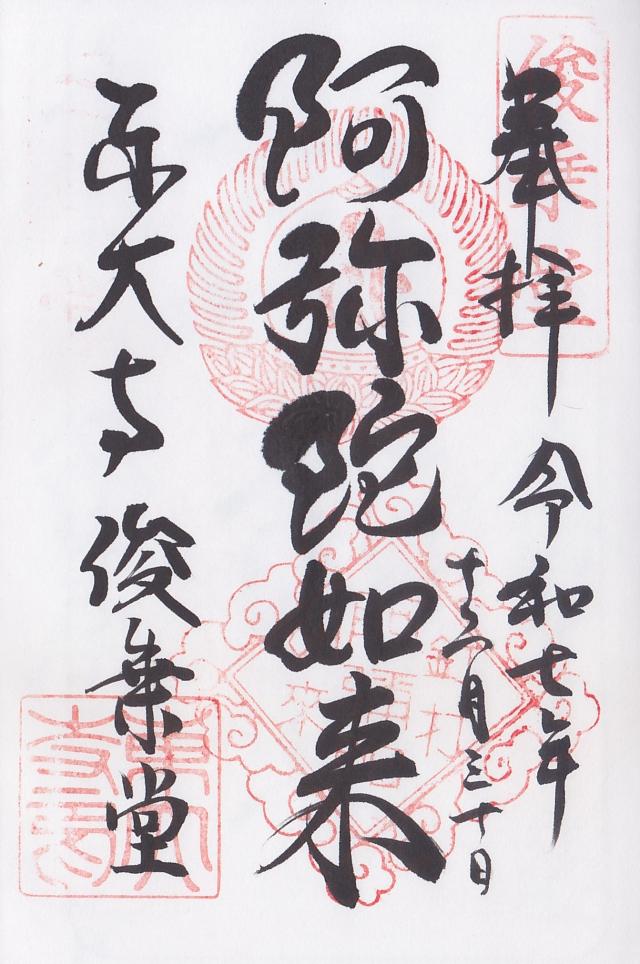 奉拝 令和七年
十二月三十日
阿弥陀如来
東大寺 俊乗堂
俊乗堂